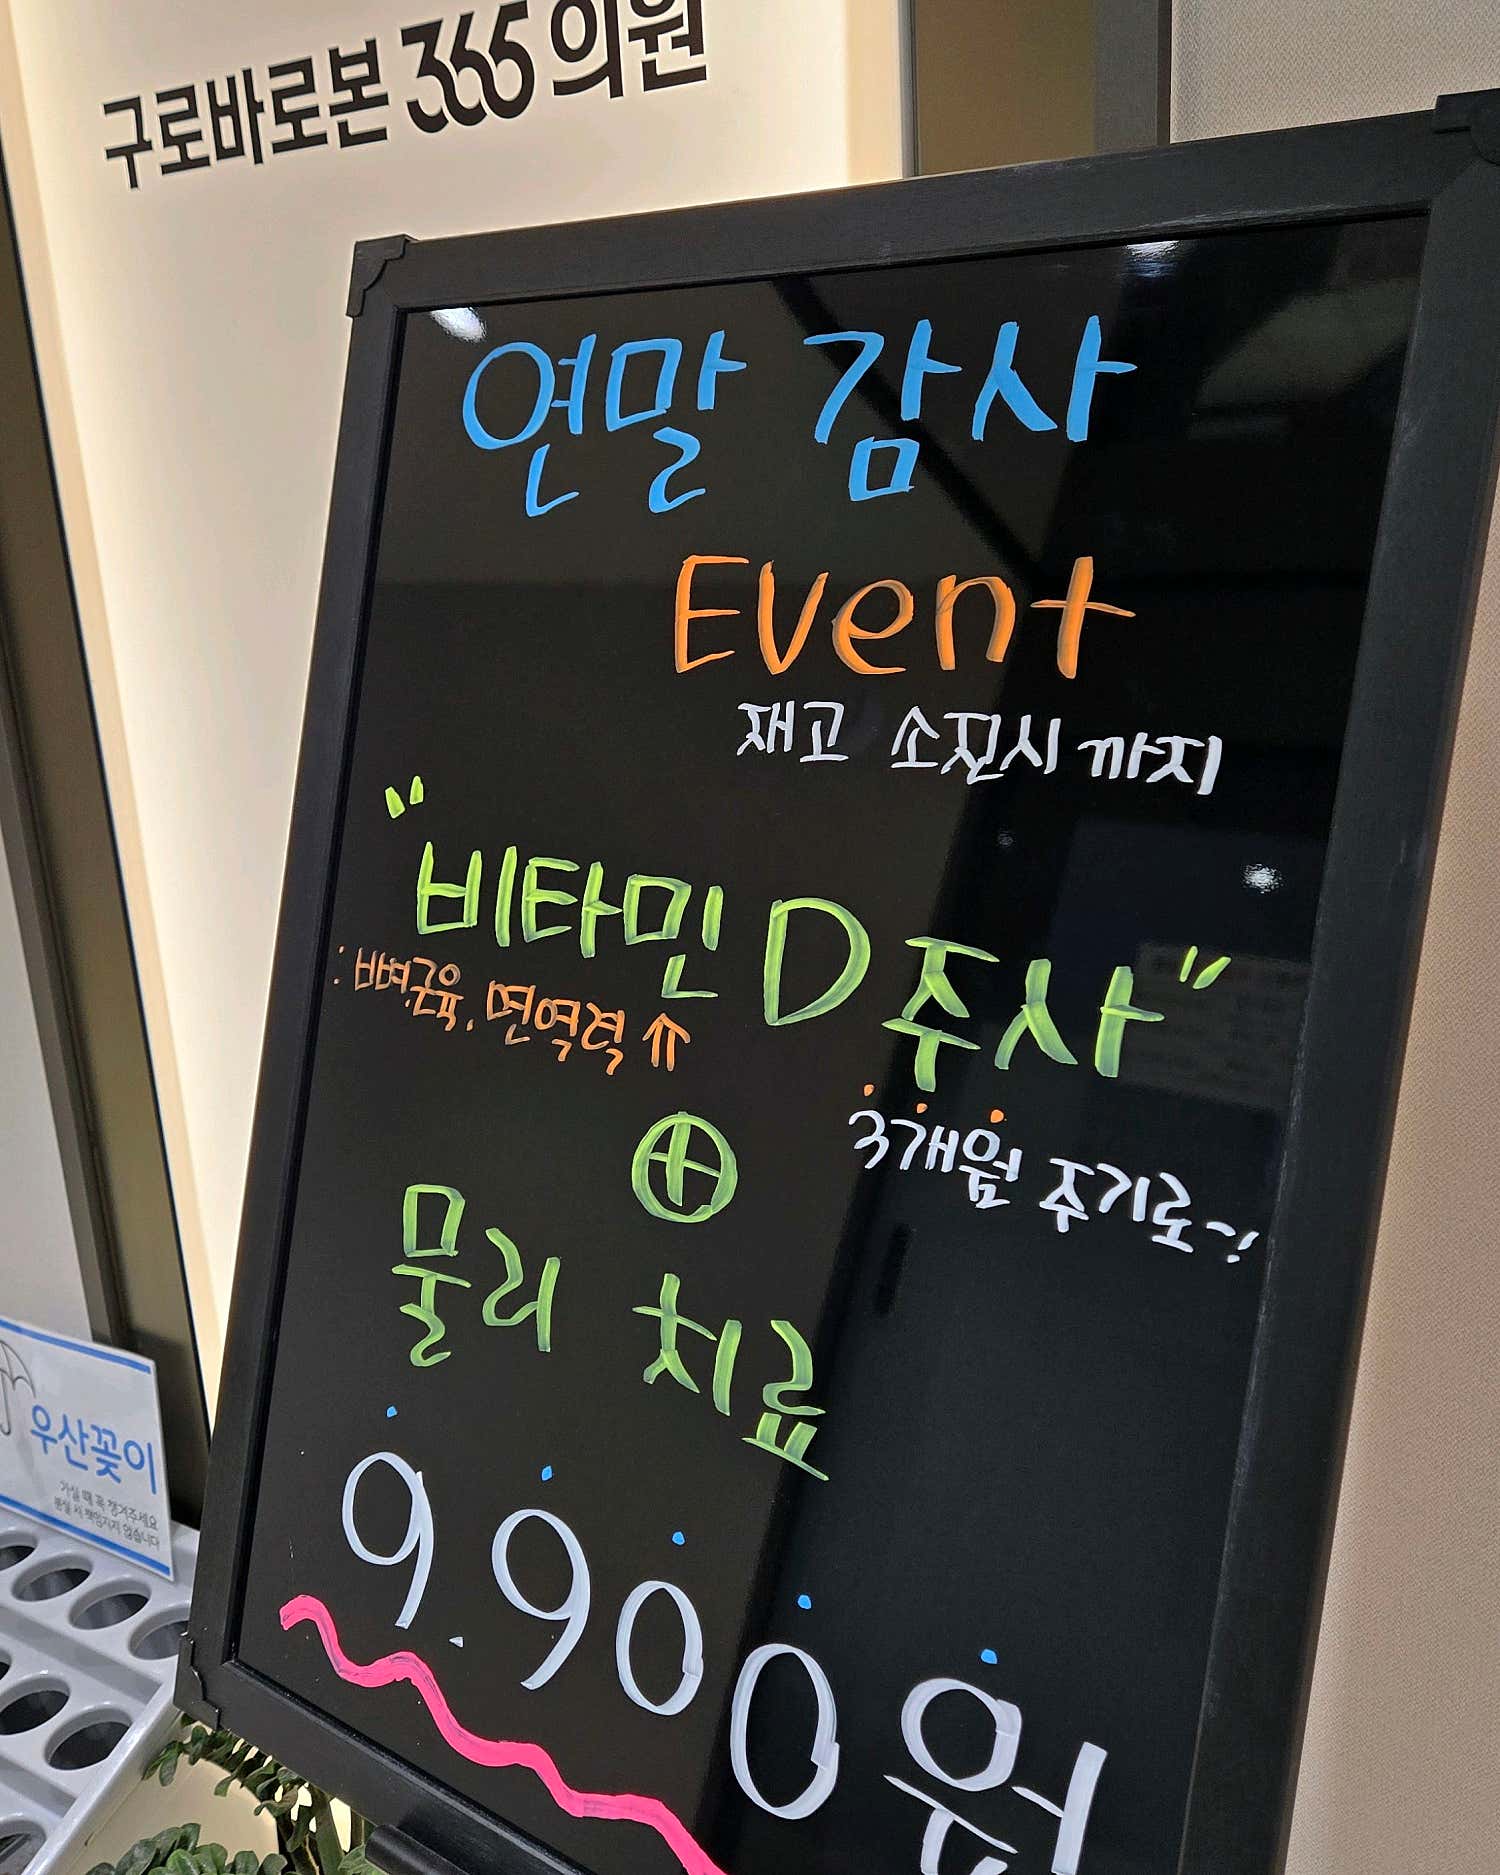 구로바로본 365 의원
연말 감사
Event
재고 소진시 까지
"비타민 D 주사"
: 뼈, 근육, 면역력 ⇑
3개월 주기로~!
⊕
물리 치료
9.900원
우산꽂이
가실 때 꼭 챙겨주세요
분실 시 책임지지 않습니다